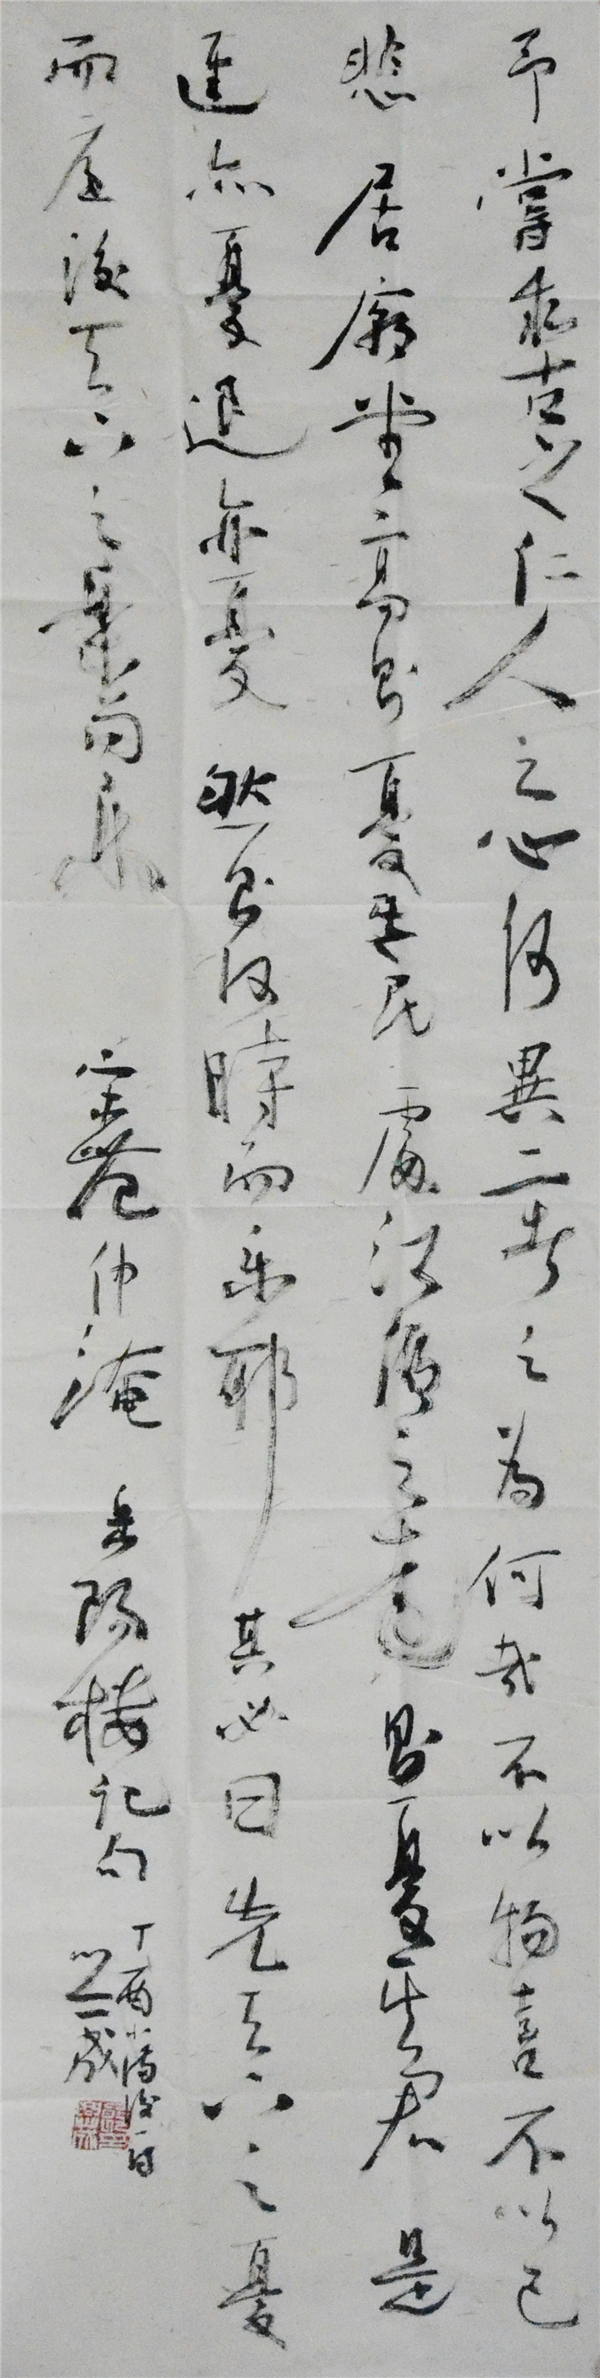 予嘗求古之仁人之心何異二者之為何哉不以物喜不以己
悲居廟堂高則憂其民處江湖之遠則憂其君是
進亦憂退亦憂然則何時而樂耶其必曰先天下之憂
而憂後天下之樂而樂宋范仲淹岳陽樓記句
丁酉小滿後一日
成